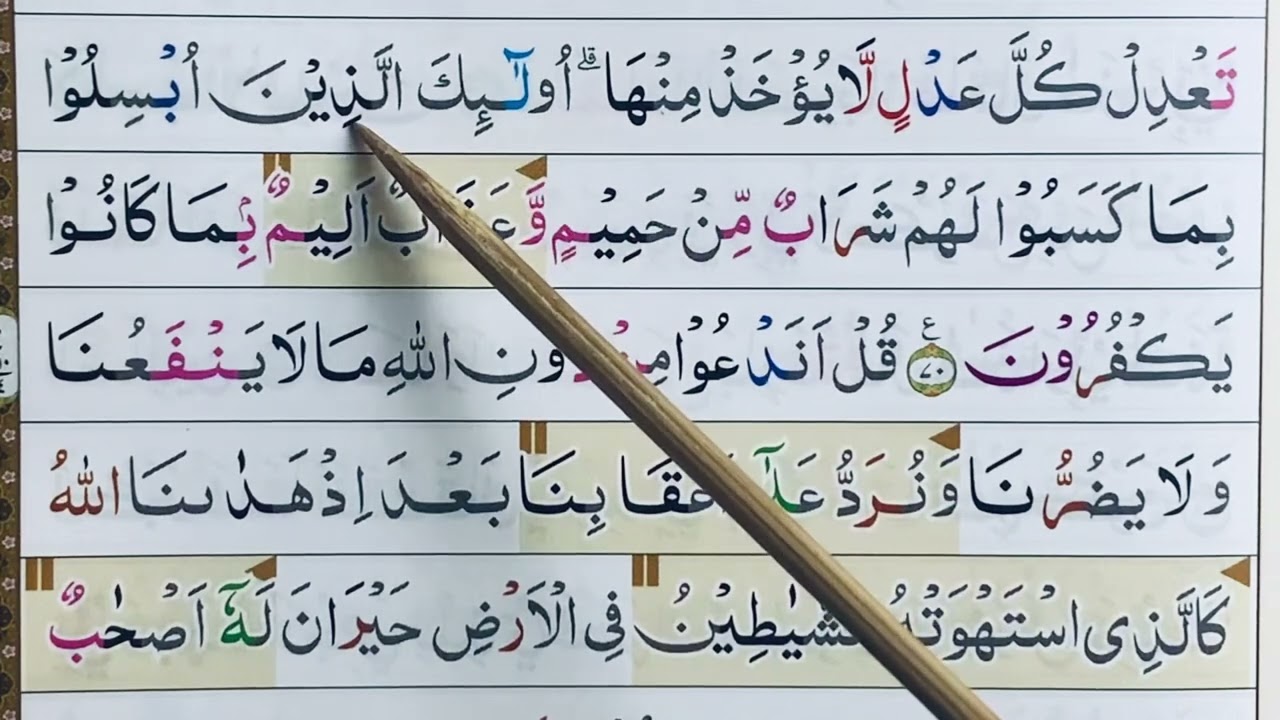 تَعْدِلْ كُلَّ عَدْلٍ لَّا يُؤْخَذْ مِنْهَا ۗ اُولٰٓئِكَ الَّذِيْنَ اُبْسِلُوْا
بِمَا كَسَبُوْا لَهُمْ شَرَابٌ مِّنْ حَمِيْمٍ وَّعَذَابٌ اَلِيْمٌۢ بِمَا كَانُوْا
يَكْفُرُوْنَ ع ٧٠ قُلْ اَنَدْعُوْا مِنْ دُوْنِ اللّٰهِ مَا لَا يَنْفَعُنَا
وَلَا يَضُرُّنَا وَنُرَدُّ عَلٰٓى اَعْقَابِنَا بَعْدَ اِذْ هَدٰىنَا اللّٰهُ
كَالَّذِى اسْتَهْوَتْهُ الشَّيٰطِيْنُ فِى الْاَرْضِ حَيْرَانَ لَهٗٓ اَصْحٰبٌ